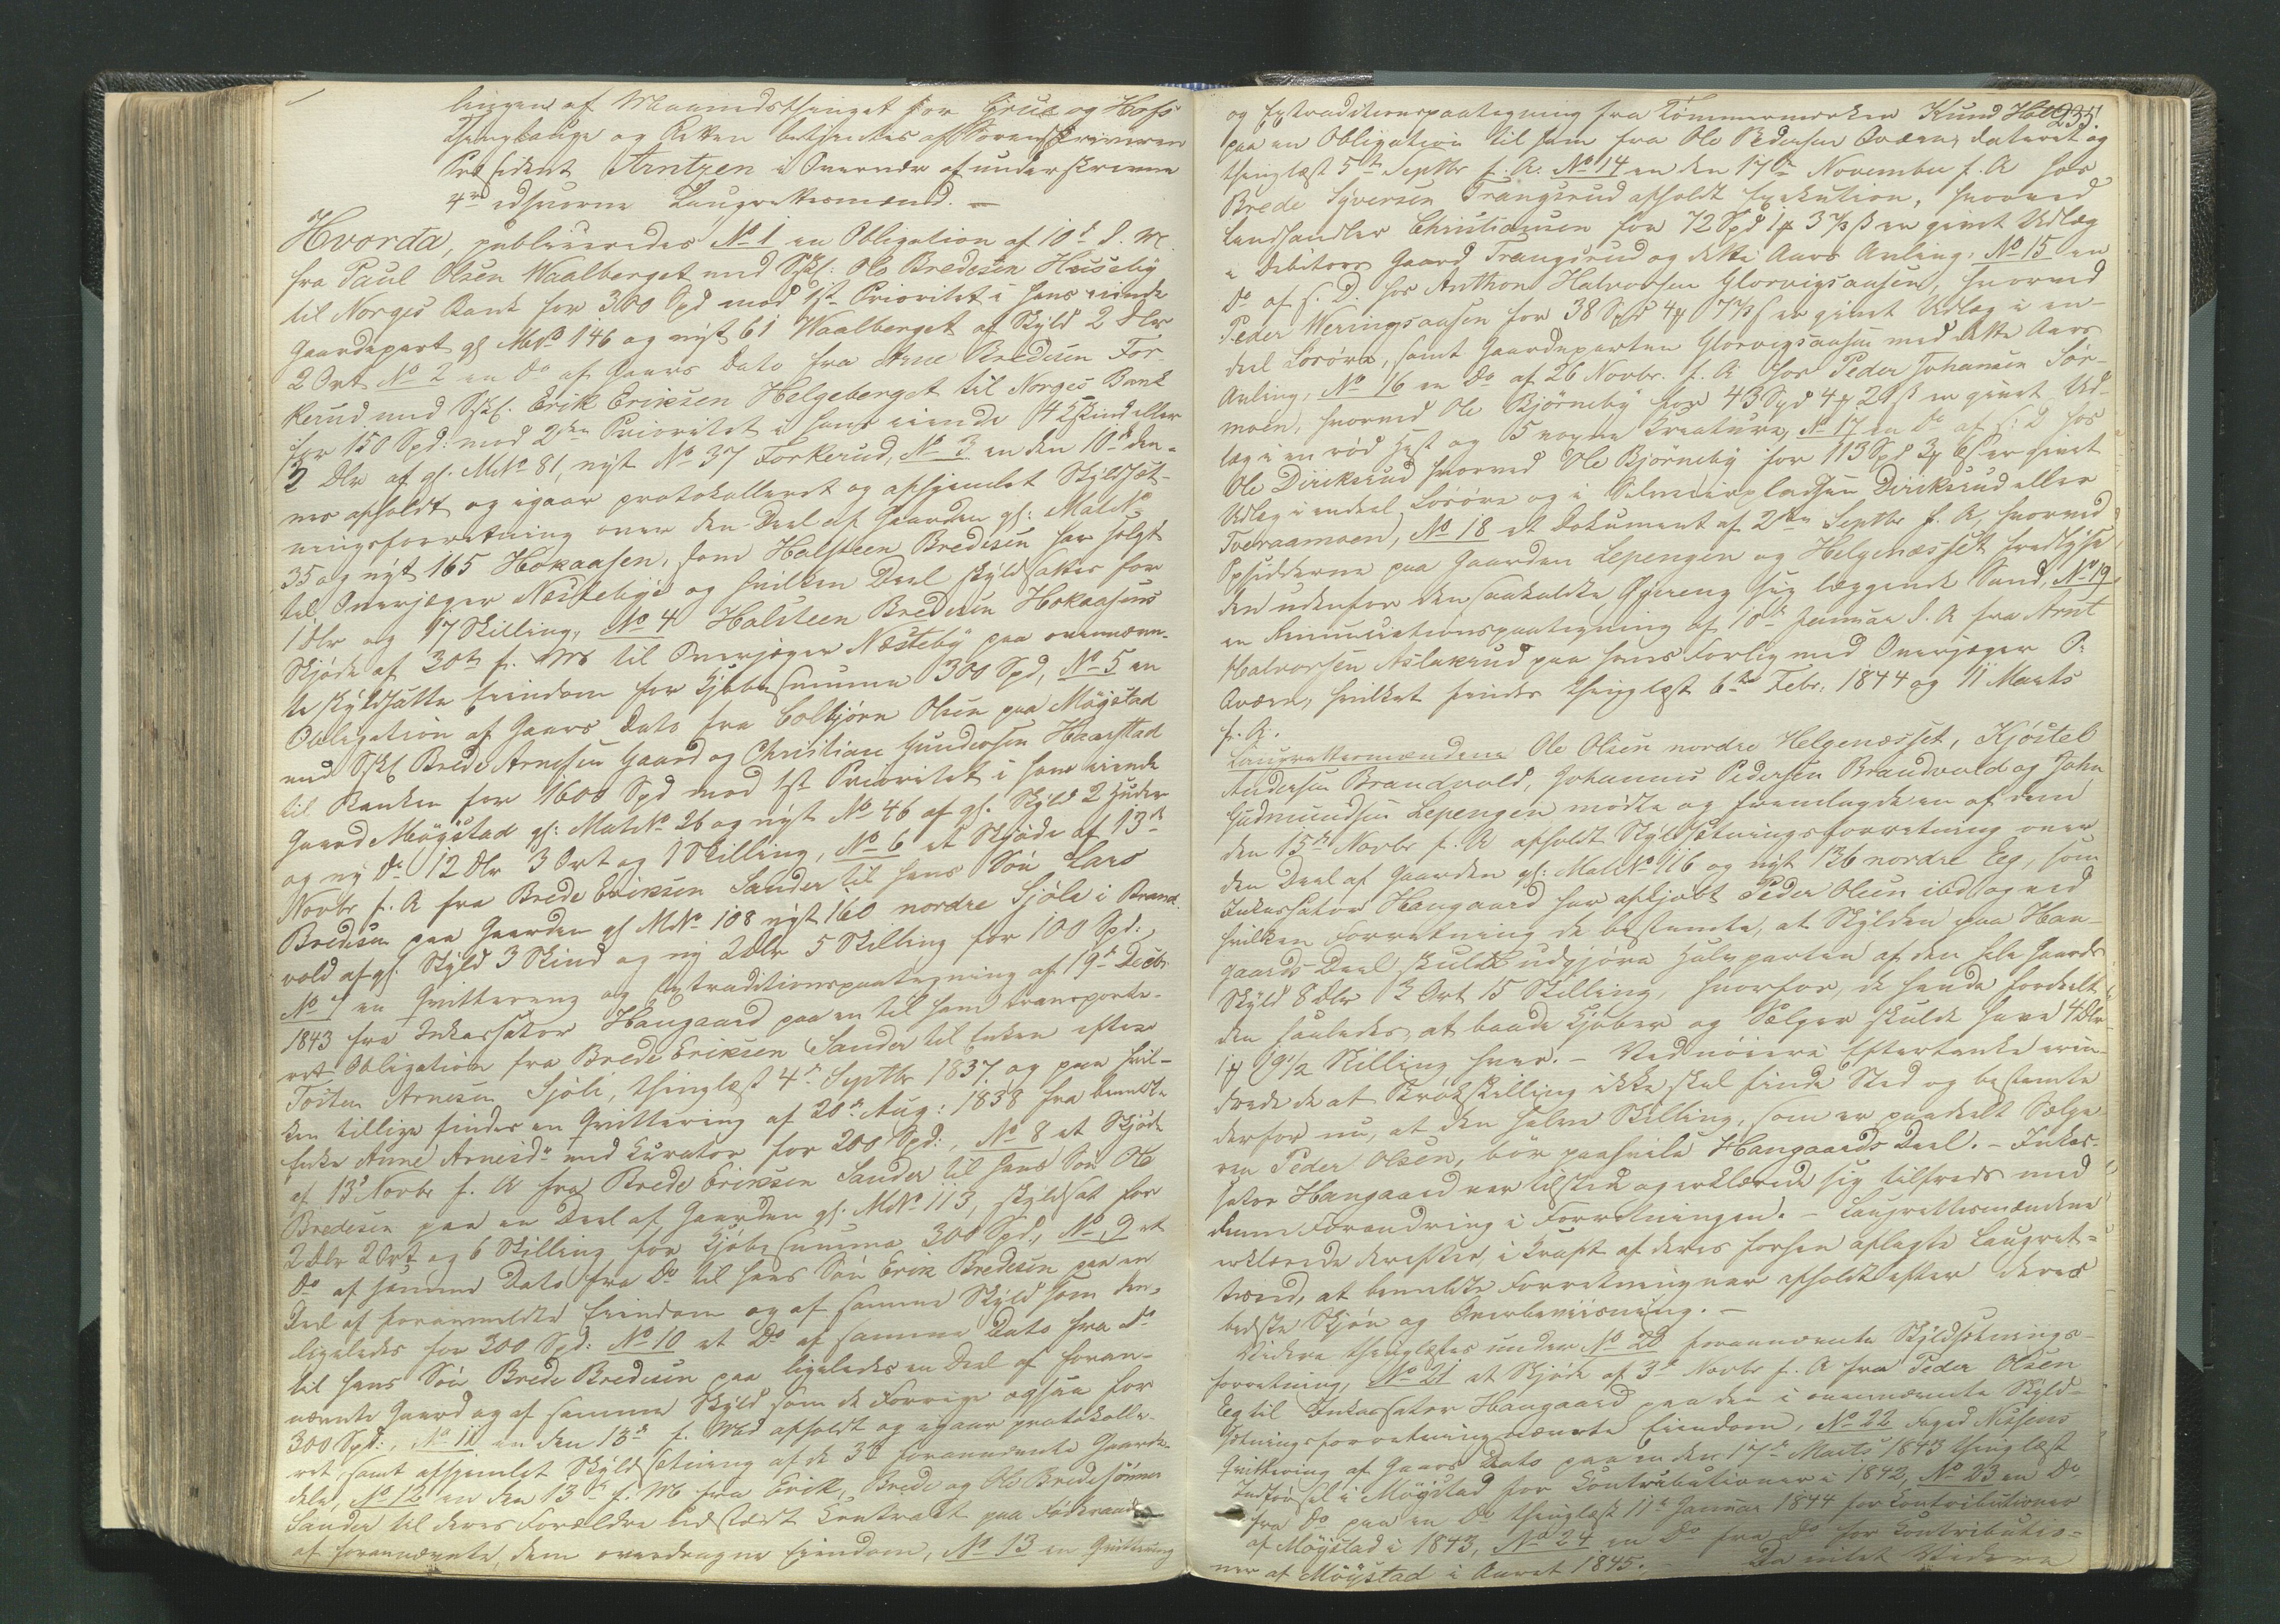 lingen af Maanedsthinget for Grue og Hofs
Thinglauge og Retten betjentes af Sorenskriveren
President Arntzen i Overvær af underskrevne
4re edsvorne Laugrettesmænd. —
Hvorda, publiceredes No 1 en Obligation af 10d d. M.
fra Paul Olsen Waalberget med Sskl: Ole Bredesen Husseby
til Norges Bank for 300 Spd mod 1ste Prioritet i hans eiende
Gaardepart gl MNo 146 og nyt 61 Waalberget af Skyld 2 Dlr
2 Ort No 2 en Do af Gaars Dato fra Arne Bredesen For-
kerud med Sskl. Erik Eriksen Helgeberget til Norges Bank
for 150 Spd: mod 2den Prioritet i hans eiende 4 Skind eller
2 Dlr af gl. MNo 81, nyt No 37 Forkerud, No 3 en den 10d den-
nes afholdt og igaar protokolleret og afhjemlet Skyldsæt-
ningsforretning over den Deel af Gaarden gl: MatNo
35 og nyt 165 Hokaasen, som Halsteen Bredesen har solgt
til Overjæger Næsteby og hvilken Deel skyldsattes for
1 Dlr og 17 Skilling, No 4 Halsteen Bredesen Hokaasens
Skjøde af 30te f. M til Overjæger Næsteby paa ovennævn-
te skyldsatte Eiendom for Kjøbesumma 300 Spd, No 5 en
Obligation af Gaars Dato fra Colbjørn Olsen paa Møystad
med Sskl Brede Arnesen Gaard og Christian Gundersen Haarstad
til Banken for 1600 Spd mod 1st Prioritet i hans eiende
Gaard Møystad gl: MatNo 26 og nyt No 46 af gl. Skyld 2 Huder
og ny Do 12 Dlr 3 Ort og 1 Skilling, No 6 et Skjøde af 13d
Novbr f. A fra Brede Eriksen Sander til hans Søn Lars
Bredesen paa Gaarden gl MNo 108 nyt 160 nordre Sjøle i Brand-
vold af gl. Skyld 3 Skind og ny 2 Dlr 5 Skilling for 100 Spd.
No 7 en Qvittering og Extraditionspaategning af 19d Decbr
1843 fra Inkassator Haugaard paa en til ham transporte-
ret Obligation fra Brede Eriksen Sander til Enken efter
Tosten Arnesen Sjøli, thinglæst 4d Septbr 1837 og paa hvil-
ken tillige findes en Qvittering af 20d Aug: 1838 fra bemeldte
Enke Anne Arnesdr med Curator for 200 Spd:, No 8 et Skjøde
af 13d Novbr f. A fra Brede Eriksen Sander til hans Søn Ole
Bredesen paa en Deel af Gaarden gl. MNo 113, skyldsat for
2 Dlr 2 Ort og 6 Skilling for Kjøbesumma 300 Spd, No 9 et
Do af samme Dato fra Do til hans Søn Erik Bredesen paa en
Deel af foranmeldte Eiendom og af samme Skyld som den,
ligeledes for 300 Spd: No 10 et Do af samme Dato fra Do
til hans Søn Brede Bredesen paa ligeledes en Deel af foran-
nævnte Gaard og af samme Skyld som de Forrige ogsaa for
300 Spd:, No 11 en den 13d f. Md afholdt og igaar protokolle-
ret, samt afhjemlet Skyldsætning af de 3de forannævnte Gaarde-
dele, No 12 en den 13d f. M fra Erik, Brede og Ole Bredesønner
Sander til deres Forældre udstædt Contract paa Føderaad
af forannævnte, dem overdragne Eiendom, No 13 en Qvittering
235
og Extraditionspaategning fra Tømmermerker Knud
paa en Obligation til ham fra Ole Pedersen Qværn, dateret og
thinglæst 5te Septbr f. A. No 14 en den 17de November f. A hos
Brede Syversen Trangsrud afholdt Exekution, hvorved
Landhandler Christiansen for 72 Spd 1 ort 3 ß er givet Udlæg
i Debitors Gaard Trangsrud og dette Aars Avling, No 15 en
Do af s. D. hos Anthon Halvorsen Glorvigsaasen, hvorved
Peder Weringsaasen for 38 Spd 4 ort er givet Udlæg i en-
deel Løsøre, samt Gaardeparten Glorvigsaasen med dette Aars
Avling, No 16 en Do af 26 Novbr. f. A hos Peder Johansen Sør-
moen, hvorved Ole Bjørneby for 43 Spd 4 ort 21 ß er givet Ud-
læg i en rød Hest og 5 voxne Kreature, No 17 en Do af s. D hos
Ole Diriksrud hvorved Ole Bjørneby for 113 Spd 3 ort 6 ß er givet
Udlæg i endeel Løsøre og i Selveierpladsen Diriksrud eller
Tveraamoen, No 18 et Dokument af 2den Septbr f. A, hvorved
Opsidderne paa Gaarden Lepengen og Helgenæsset fredlyse
den udenfor den saakaldte Øiereng sig læggende Sand, No 19
en Renunciationspaategning af 10d Januar d. A fra Arnt
Halvorsen Aslakrud paa hans Forlig med Overjæger P.
Qværn, hvilket findes thinglæst 6te Febr. 1844 og 11 Marts
f. A.
Laugrettesmændene Ole Olsen nordre Helgenæsset, Kjøstel
Andersen Brandvold, Johannes Pedersen Brandvold og John
Gudmundsen Lepengen mødte og fremlagde en af dem
den 15de Novbr f. A afholdt Skyldsætningsforretning over
den Deel af Gaarden gl: MatNo 116 og nyt 136 nordre Eeg, som
Inkassator Haugaard har afkjøbt Peder Olsen ibd. og ved
hvilken Forretning de bestemte, at Skylden paa Hau-
gaards Deel skulde udgjøre Halvparten af den hele Gaards
Skyld 8 Dlr 3 Ort 15 Skilling, hvorfor, de havde fordeelt
den saaledes, at baade Kjøber og Sælger skulde have 4 Dlr
1 ort 19 1/2 Skilling hver. — Ved nøiere Eftertanke erin-
drede de at Brøkskilling ikke skal finde Sted og bestemte
derfor nu, at den halve Skilling, som er paadeelt Sælge-
ren Peder Olsen, bør paahvile Haugaards Deel. — Inkas-
sator Haugaard var tilstede og erklærede sig tilfreds med
denne Forandring i Forretningen. — Laugrettesmændene
erklærede derefter, i Kraft af deres forhen aflagte Laugret-
teeed, at bemeldte Forretning var afholdt efter deres
bedste Skjøn og Overbeviisning. —
Videre thinglæstes under No 20 forannævnte Skyldsætnings-
forretning, No 21 et Skjøde af 3d Novbr f. A fra Peder Olsen
Eeg til Inkassator Haugaard paa den i ovennævnte Skyld-
sætningsforretning nævnte Eiendom, No 22 Foged Nissens
Qvittering af Gaars Dato paa en den 17de Marts 1843 thinglæst
Indførsel i Møystad for Contributioner i 1842, No 23 en Do
fra Do paa en Do thinglæst 11d Januar 1844 for Contributioner
af Møystad i 1843, No 24 en Do fra Do for Contributio-
ner af Møystad i Aaret 1845. — Da intet Videre